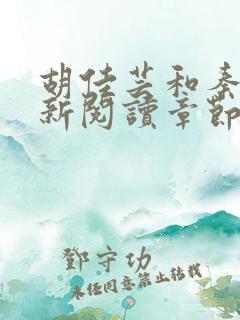 胡佳芸和秦
新閱讀章節
鄧守功
未经同意禁止转载